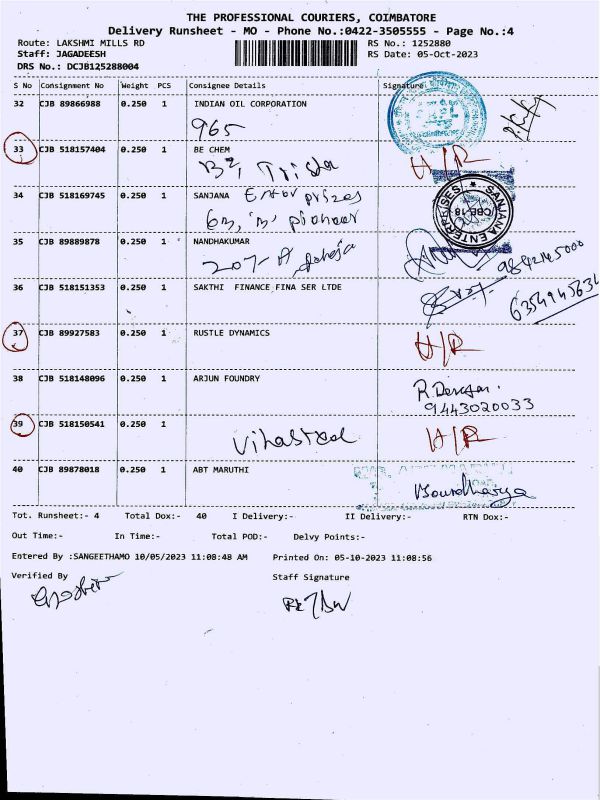 THE PROFESSIONAL COURIERS, COIMBATORE
Delivery Runsheet - MO - Phone No.:0422-3505555 - Page No.:4
Route: LAKSHMI MILLS RD RS No.: 1252880
Staff: JAGADEESH RS Date: 05-Oct-2023
DRS No.: DCJB125288004
S No Consignment No Weight PCS Consignee Details Signature
32 CJB 89866988 0.250 1 INDIAN OIL CORPORATION
965
33 CJB 518157404 0.250 1 BE CHEM H/R
34 CJB 518169745 0.250 1 SANJANA Enter prizes
SANJANA ENTERPRISES
CBE-18
35 CJB 89889878 0.250 1 NANDHAKUMAR
207-A
9842145000
36 CJB 518151353 0.250 1 SAKTHI FINANCE FINA SER LTDE
6354945634
37 CJB 89927583 0.250 1 RUSTLE DYNAMICS H/R
38 CJB 518148096 0.250 1 ARJUN FOUNDRY
9443020033
39 CJB 518150541 0.250 1 H/R
40 CJB 89878018 0.250 1 ABT MARUTHI
Tot. Runsheet:- 4 Total Dox:- 40 I Delivery:- II Delivery:- RTN Dox:-
Out Time:- In Time:- Total POD:- Delvy Points:-
Entered By :SANGEETHAMO 10/05/2023 11:08:48 AM Printed On: 05-10-2023 11:08:56
Verified By Staff Signature